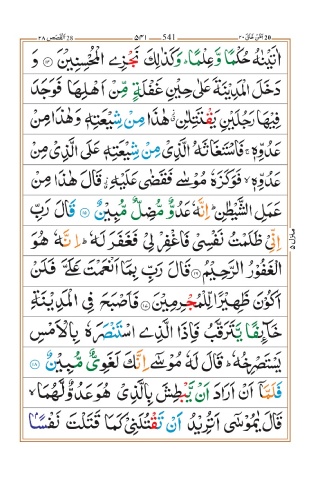 القصص ٢٨ 28 ٥٤١ 541 امّن خلق ٢٠ 20
اٰتَيْنٰهُ حُكْمًا وَّعِلْمًا ؕ وَكَذٰلِكَ نَجْزِى الْمُحْسِنِيْنَ ﴿۱۴﴾ وَ
دَخَلَ الْمَدِيْنَةَ عَلٰى حِيْنِ غَفْلَةٍ مِّنْ اَهْلِهَا فَوَجَدَ
فِيْهَا رَجُلَيْنِ يَقْتَتِلٰنِ ۖ هٰذَا مِنْ شِيْعَتِهٖ وَهٰذَا مِنْ
عَدُوِّهٖ ۚ فَاسْتَغَاثَهُ الَّذِىْ مِنْ شِيْعَتِهٖ عَلَى الَّذِىْ مِنْ
عَدُوِّهٖ ۙ فَوَكَزَهٗ مُوْسٰى فَقَضٰى عَلَيْهِ ۖ قَالَ هٰذَا مِنْ
عَمَلِ الشَّيْطٰنِ ؕ اِنَّهٗ عَدُوٌّ مُّضِلٌّ مُّبِيْنٌ ﴿۱۵﴾ قَالَ رَبِّ
اِنِّىْ ظَلَمْتُ نَفْسِىْ فَاغْفِرْ لِىْ فَغَفَرَ لَهٗ ؕ اِنَّهٗ هُوَ
الْغَفُوْرُ الرَّحِيْمُ ﴿۱۶﴾ قَالَ رَبِّ بِمَاۤ اَنْعَمْتَ عَلَىَّ فَلَنْ
اَكُوْنَ ظَهِيْرًا لِّلْمُجْرِمِيْنَ ﴿۱۷﴾ فَاَصْبَحَ فِى الْمَدِيْنَةِ
خَآئِفًا يَّتَرَقَّبُ فَاِذَا الَّذِى اسْتَنْصَرَهٗ بِالْاَمْسِ
يَسْتَصْرِخُهٗ ؕ قَالَ لَهٗ مُوْسٰۤى اِنَّكَ لَغَوِىٌّ مُّبِيْنٌ ﴿۱۸﴾
فَلَمَّاۤ اَنْ اَرَادَ اَنْ يَّبْطِشَ بِالَّذِىْ هُوَ عَدُوٌّ لَّهُمَا ۙ
قَالَ يٰمُوْسٰۤى اَتُرِيْدُ اَنْ تَقْتُلَنِىْ كَمَا قَتَلْتَ نَفْسًۢا
منزل ٥